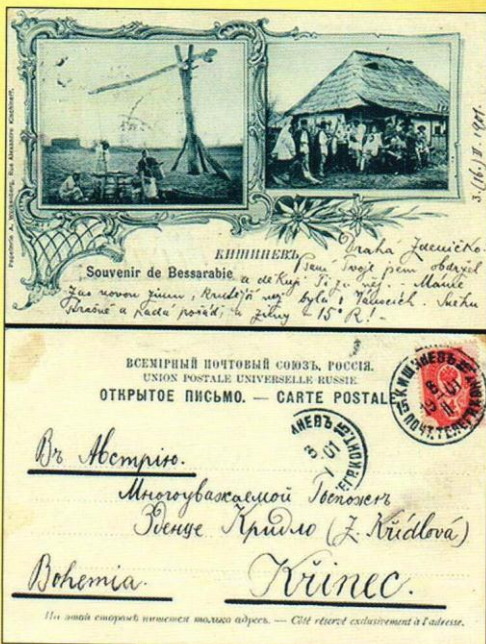 Papeterie A. Wolkenberg, Rue Alexandre Kischineff.
3.(16.) II. 1901.
КИШИНЕВЪ
Souvenir de Bessarabie
Drahá Zdeničko.
Psaní Tvoje jsem obdržel
a děkuji Ti za něj. Máme
zas novou zimu, krutější než byla o Vánocích. Sněhu
strašně a padá pořád, a zimy -15° R! -
ВСЕМІРНЫЙ ПОЧТОВЫЙ СОЮЗЪ, РОССІЯ.
UNION POSTALE UNIVERSELLE RUSSIE.
ОТКРЫТОЕ ПИСЬМО. — CARTE POSTALE
КИШИНЕВЪ
ПОЧТ.ТЕЛЕГР.
Въ Австрію.
Многоуважаемой Госпожѣ
Зденце Кридло (Z. Křídlová)
Bohemia.
Křinec.
На этой сторонѣ пишется только адресъ. — Côté réservé exclusivement à l'adresse.